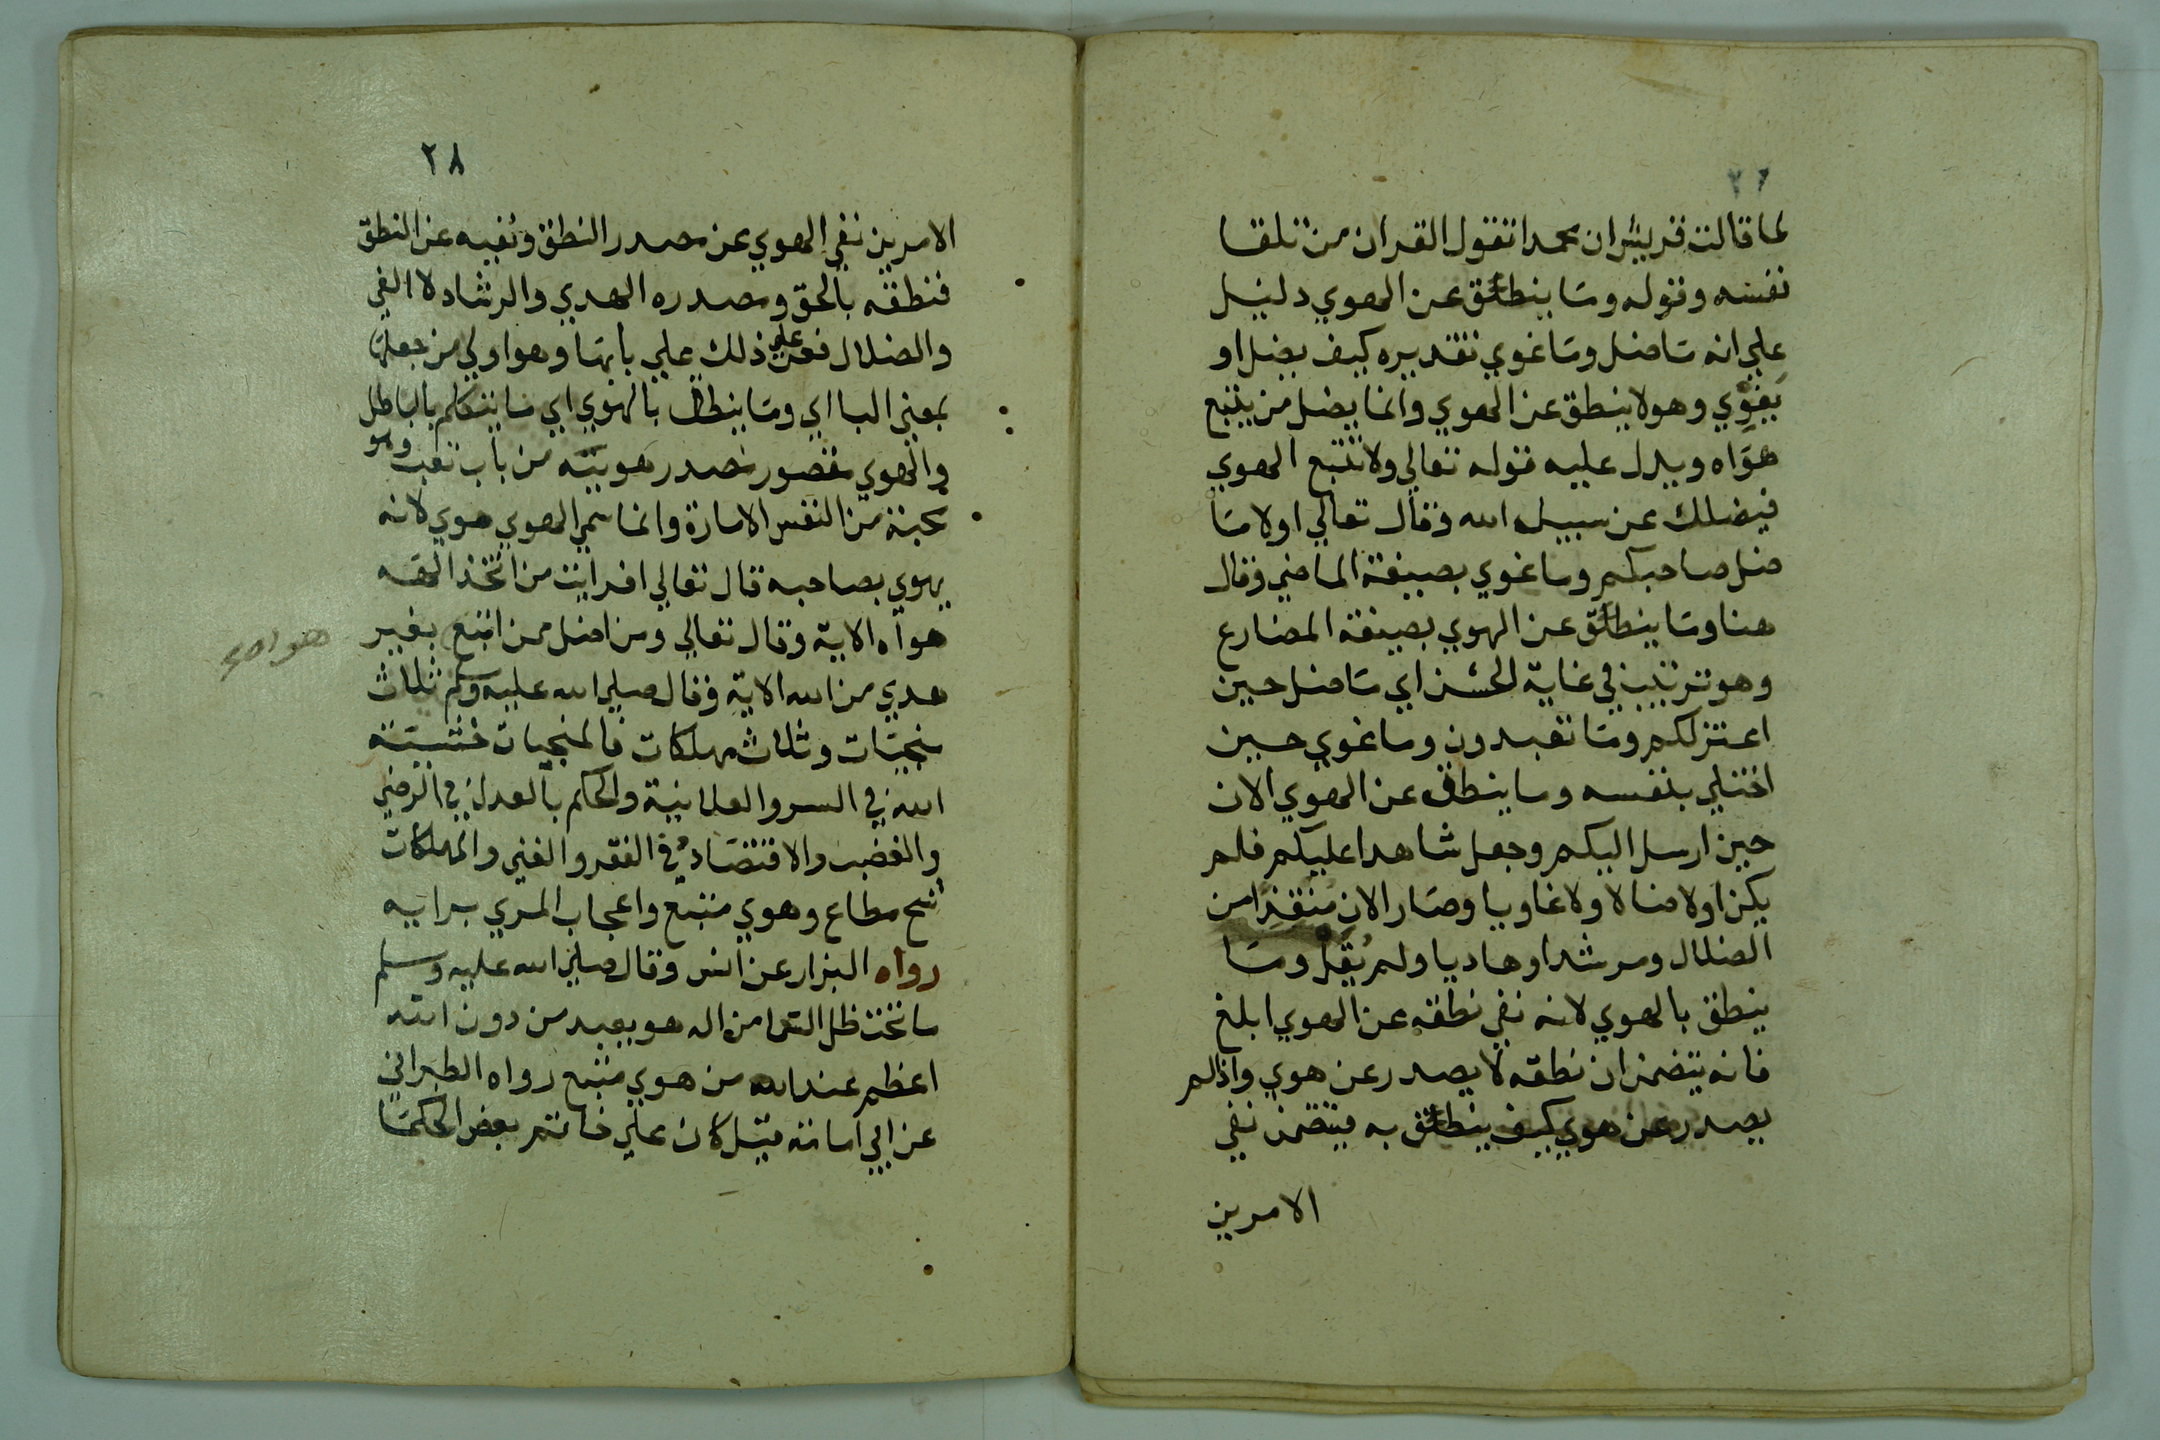 ٢٧
لما قالت قريش ان محمدا تقول القران من تلقا
نفسه وقوله وما ينطق عن الهوي دليل
علي انه ما ضل وما غوي تقديره كيف يضل او
يغوي وهو لا ينطق عن الهوي وانما يضل من يتبع
هواه ويدل عليه قوله تعالي ولا تتبع الهوي
فيضلك عن سبيل الله وقال تعالي اولا ما
ضل صاحبكم وما غوي بصيغة الماضي وقال
هنا وما ينطق عن الهوي بصيغة المضارع
وهو ترتيب في غاية الحسن اي ما ضل حين
اعتزلكم وما تعبدون وما غوي حين
اختلي بنفسه وما ينطق عن الهوي الان
حين ارسل اليكم وجعل شاهدا عليكم فلم
يكن اولا ضالا ولا غاويا وصار الان منقذا من
الضلال ومرشدا وهاديا ولم يقل وما
ينطق بالهوي لانه نفي نطقه عن الهوي ابلغ
فانه يتضمن ان نطقه لا يصدر عن هوي واذا لم
يصدر عن هوي كيف ينطق به فيتضمن نفي
الامرين
٢٨
الامرين نفي الهوي عن مصدر النطق ونفيه عن النطق
فنطقه بالحق ومصدره الهدي والرشاد لا الغي
والضلال فعن علي ذلك علي بابها وهو اولي من جعلها
بمعني البا اي وما ينطق بالهوي اي ما يتكلم بالباطل
والهوي مقصور مصدر هويته من باب تعب وهو
محبة من النفس الامارة وانما سمي الهوي هوي لانه
يهوي بصاحبه قال تعالي افرايت من اتخذ الهه
هواه الاية وقال تعالي ومن اضل ممن اتبع بغير
هواه
هدي من الله الاية وقال صلي الله عليه وسلم ثلاث
منجيات وثلاث مهلكات فالمنجيات خشية
الله في السر والعلانية والحكم بالعدل في الرضي
والغضب والاقتصاد في الفقر والغني والمهلكات
شح مطاع وهوي متبع واعجاب المري برايه
رواه البزار عن انس وقال صلي الله عليه وسلم
ما تحت ظل السما من اله هو يعبد من دون الله
اعظم عند الله من هوي متبع رواه الطبراني
عن ابي امامة قيل كان علي خاتم بعض الحكما